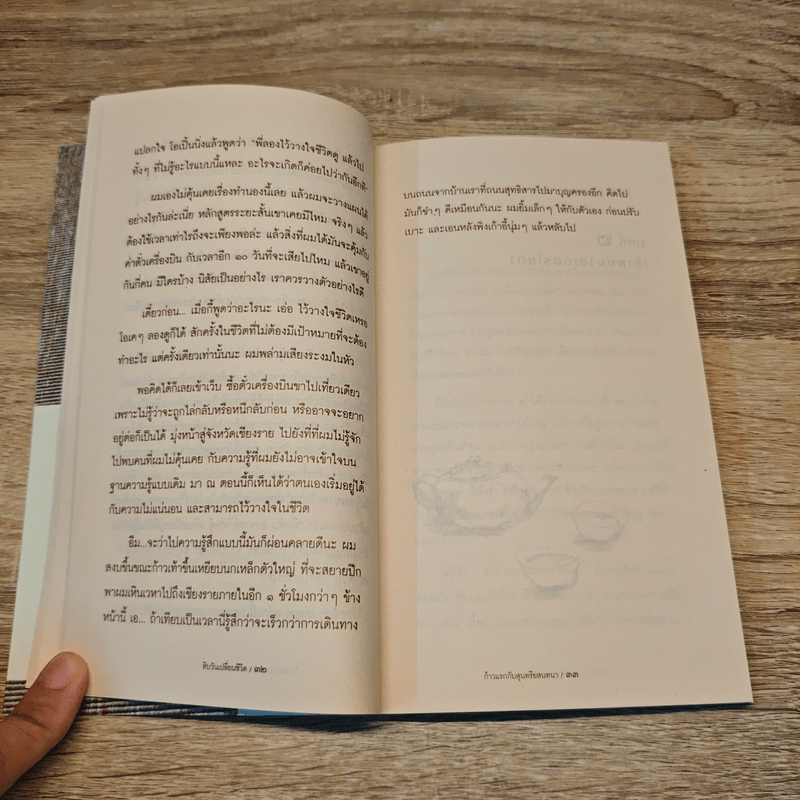 แปลกใจ โอเปิ้นนิ่งแล้วพูดว่า "พี่ลองไว้วางใจชีวิตดู แล้วไป
ทั้งๆ ที่ไม่รู้อะไรแบบนี้แหละ อะไรจะเกิดก็ค่อยไปว่ากันอีกที"
ผมเองไม่คุ้นเคยเรื่องทำนองนี้เลย แล้วผมจะวางแผนได้
อย่างไรกันล่ะเนี่ย หลักสูตรระยะสั้นเขาเคยมีไหม จริงๆ แล้ว
ต้องใช้เวลาเท่าไรถึงจะเพียงพอล่ะ แล้วสิ่งที่ผมได้มันจะคุ้มกับ
ค่าตั๋วเครื่องบิน กับเวลาอีก ๑๐ วันที่จะเสียไปไหม แล้วเขาอยู่
กันกี่คน มีใครบ้าง นิสัยเป็นอย่างไร เราควรวางตัวอย่างไรดี
เดี๋ยวก่อน... เมื่อกี้พูดว่าอะไรนะ เอ่อ ไว้วางใจชีวิตเหรอ
โอเคๆ ลองดูก็ได้ สักครั้งในชีวิตที่ไม่ต้องมีเป้าหมายที่จะต้อง
ทำอะไร แต่ครั้งเดียวเท่านั้นนะ ผมพล่ามเสียงระงมในหัว
พอคิดได้ก็เลยเข้าเว็บ ซื้อตั๋วเครื่องบินขาไปเที่ยวเดียว
เพราะไม่รู้ว่าจะถูกไล่กลับหรือหนีกลับก่อน หรืออาจจะอยาก
อยู่ต่อก็เป็นได้ มุ่งหน้าสู่จังหวัดเชียงราย ไปยังที่ที่ผมไม่รู้จัก
ไปพบคนที่ผมไม่คุ้นเคย กับความรู้ที่ผมยังไม่อาจเข้าใจบน
ฐานความรู้แบบเดิม มา ณ ตอนนี้ก็เห็นได้ว่าตนเองเริ่มอยู่ได้
กับความไม่แน่นอน และสามารถไว้วางใจในชีวิต
อืม...จะว่าไปความรู้สึกแบบนี้มันก็ผ่อนคลายดีนะ ผม
สงบขึ้นขณะก้าวเท้าขึ้นเหยียบนกเหล็กตัวใหญ่ ที่จะสยายปีก
พาผมเหินเวหาไปถึงเชียงรายภายในอีก ๑ ชั่วโมงกว่าๆ ข้าง
หน้านี้ เอ... ถ้าเทียบเป็นเวลานี่รู้สึกว่าจะเร็วกว่าการเดินทาง
สิบวันเปลี่ยนชีวิต / ๓๒
บนถนนจากบ้านเราที่ถนนสุทธิสารไปมาบุญครองอีก คิดไป
มันก็ขำๆ ดีเหมือนกันนะ ผมยิ้มเล็กๆ ให้กับตัวเอง ก่อนปรับ
เบาะ และเอนหลังพิงเก้าอี้นุ่มๆ แล้วหลับไป
ก้าวแรกกับสุนทรียสนทนา / ๓๓